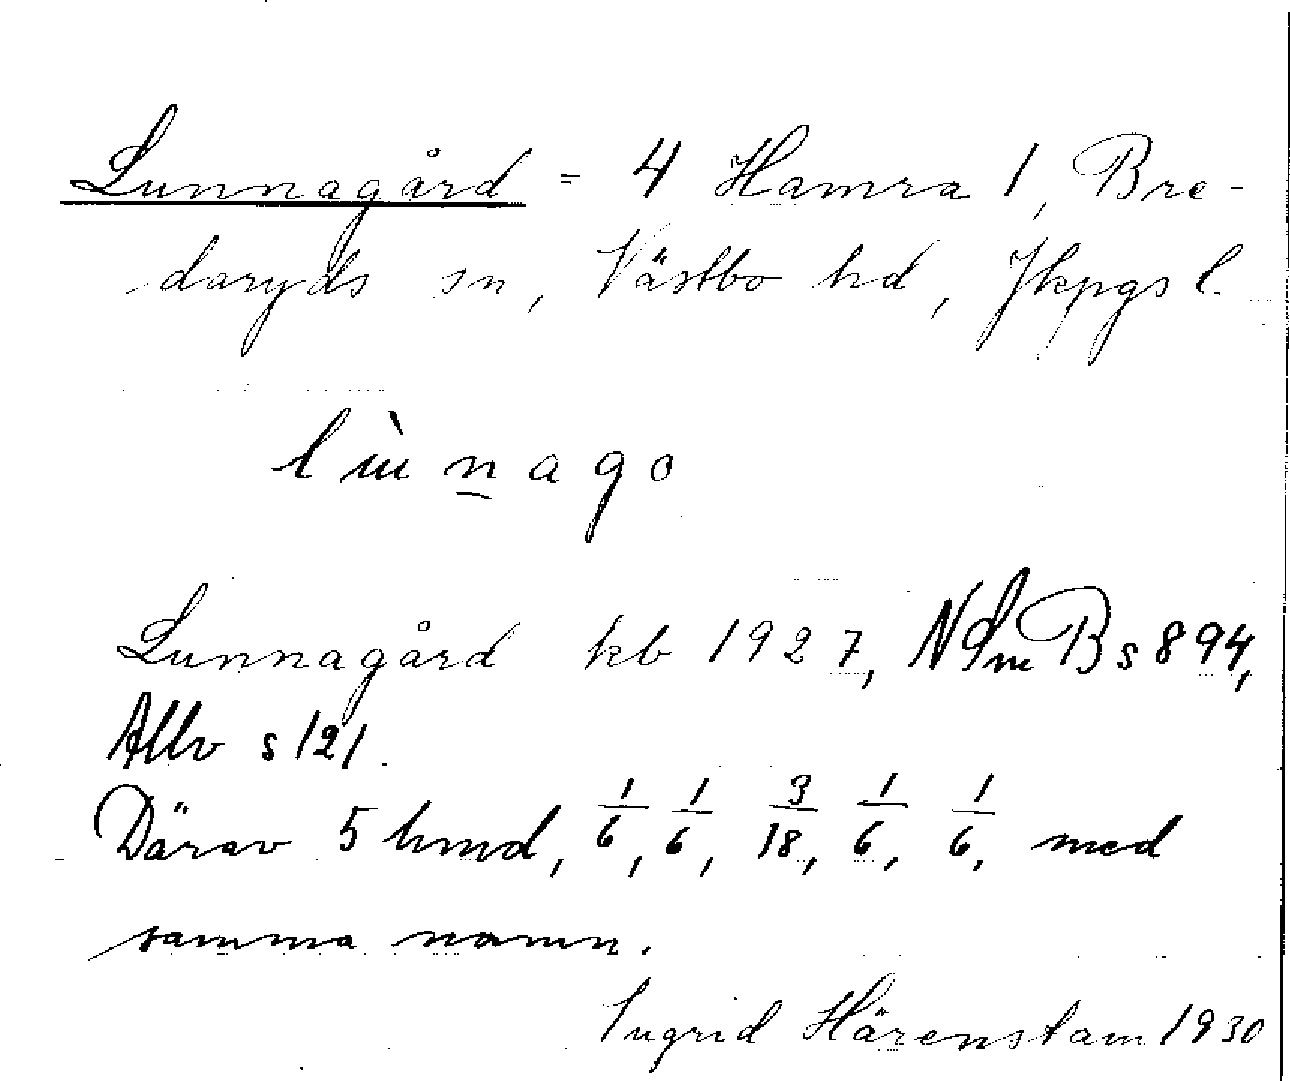 Lunnagård = 4 Hamra 1, Bre-
daryds sn, Västbo hd, Jkpgs l.
lu̇̀nago
Lunnagård kb 1927, NSmB s 894,
Allv s 121.
Därav 5 hmd, 1/6, 1/6, 3/18, 1/6, 1/6, med
samma namn.
Ingrid Härenstam 1930